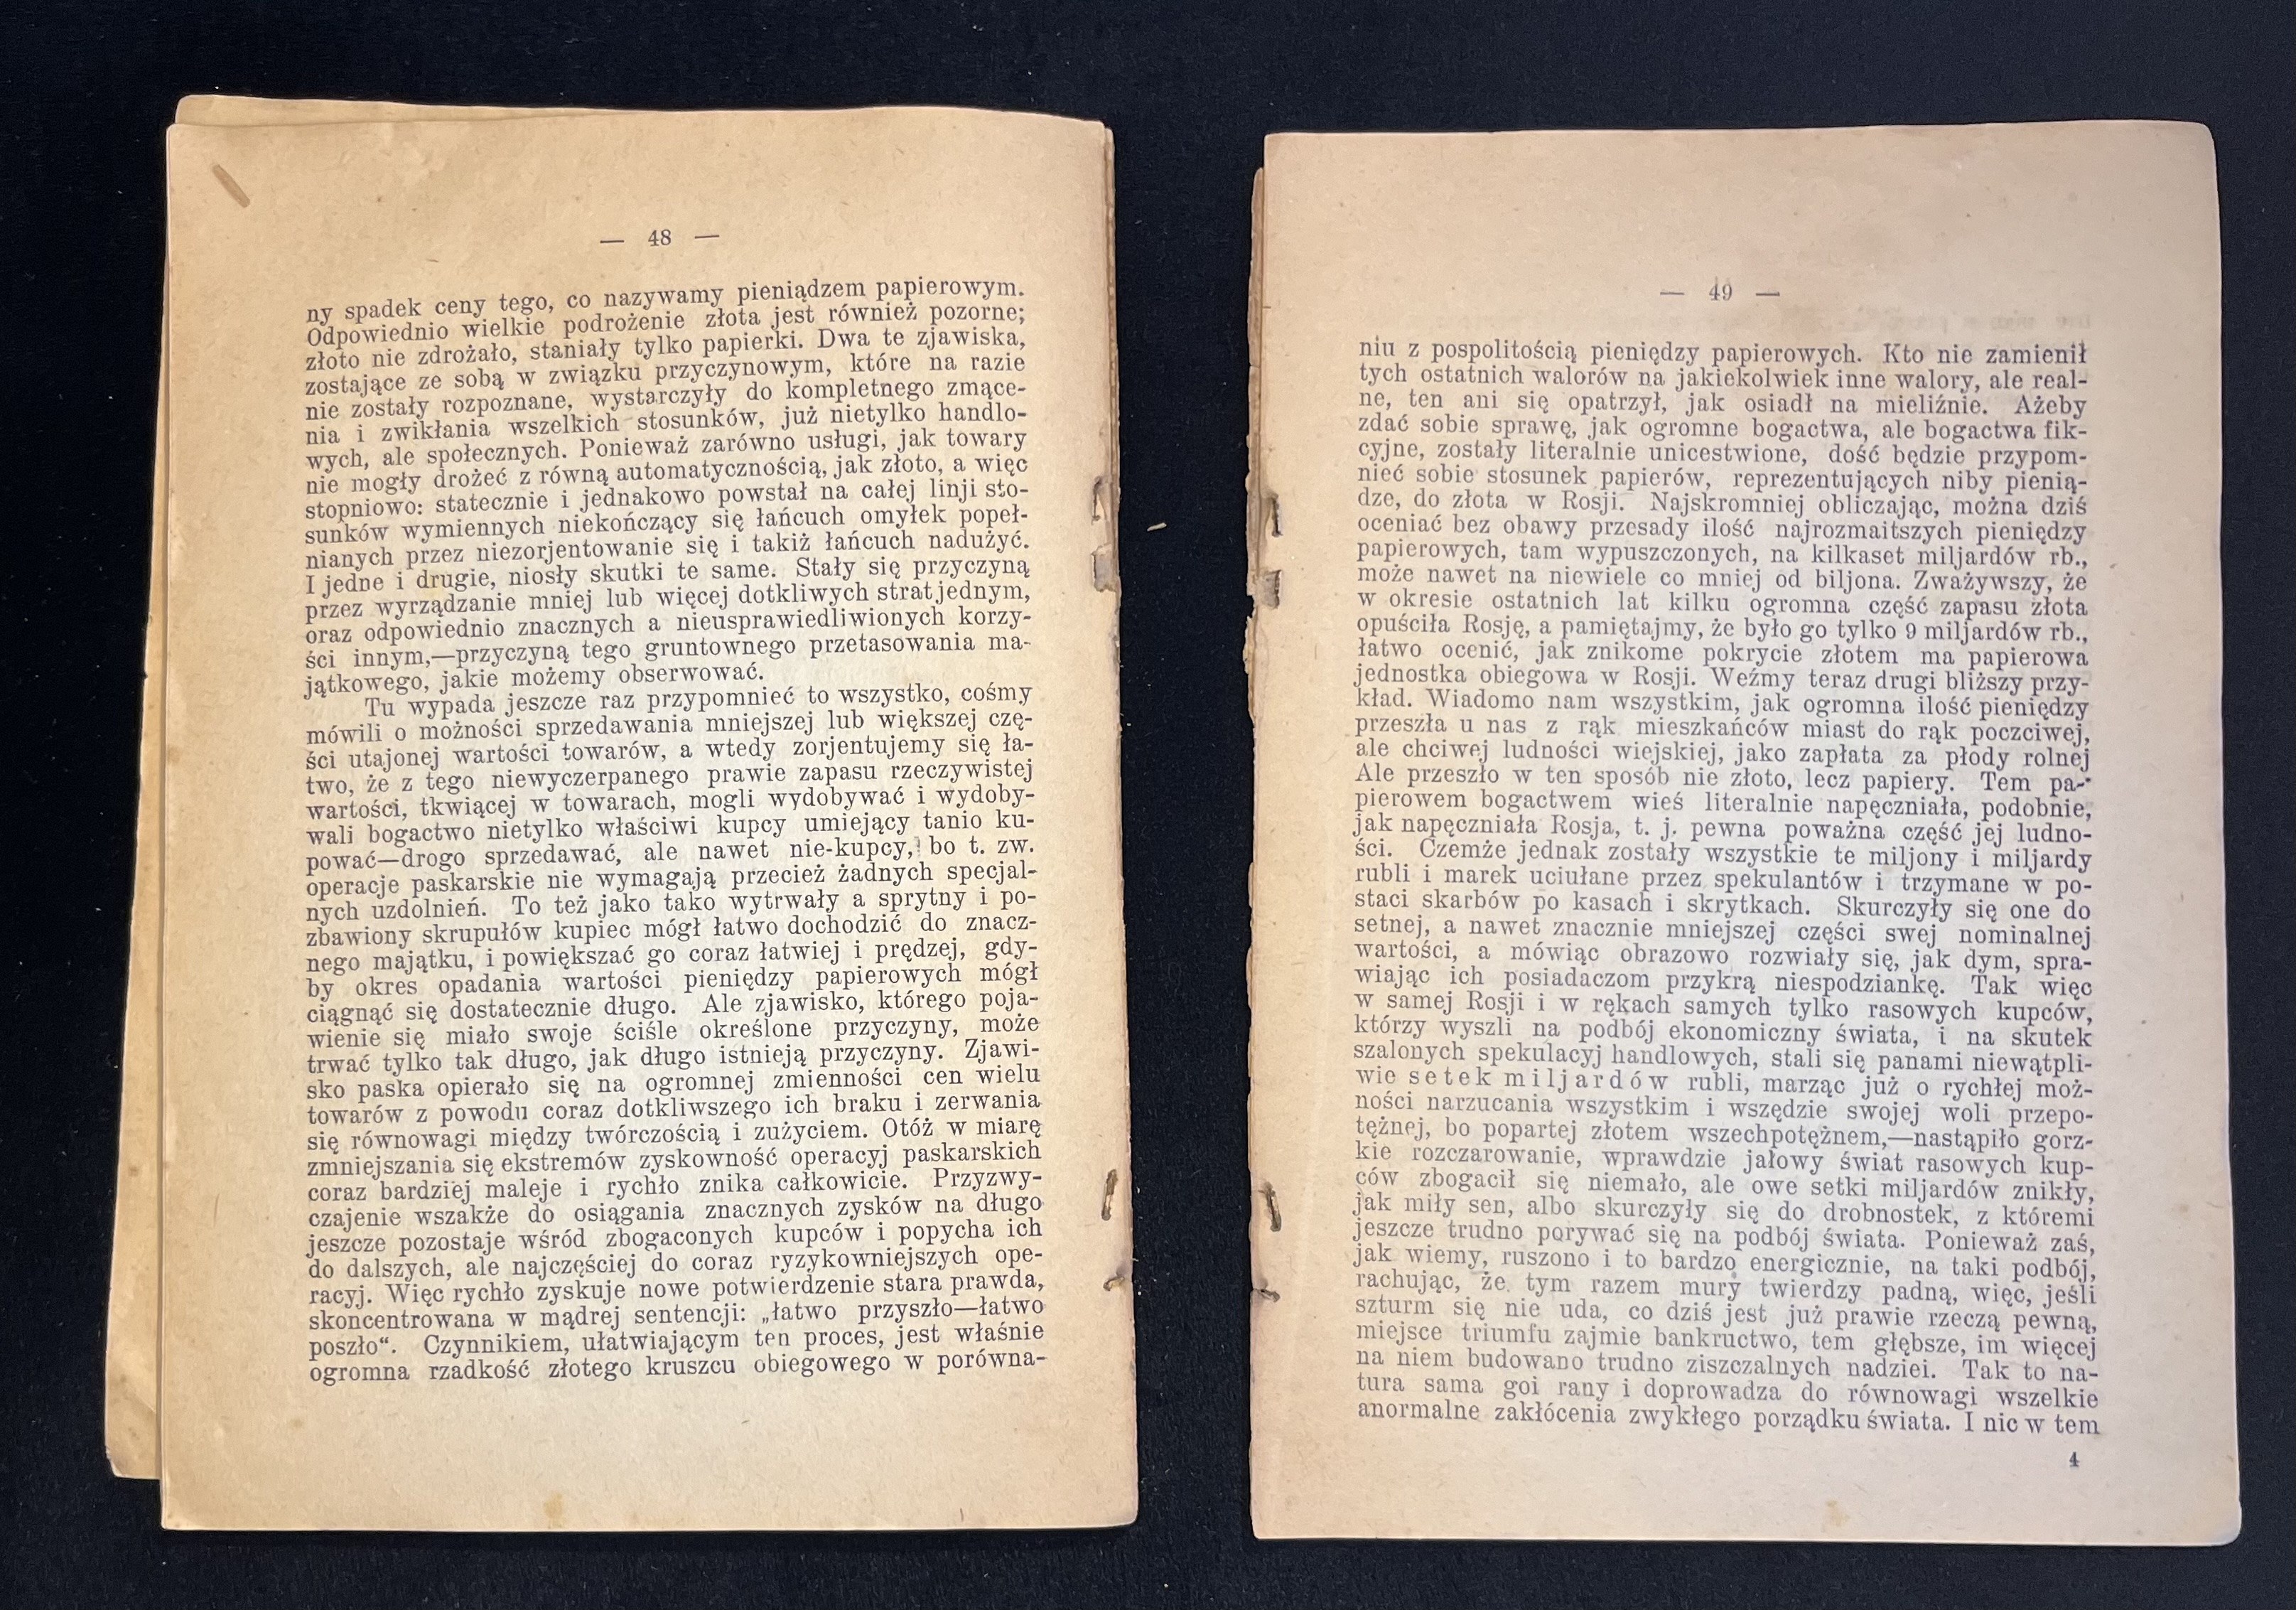 — 48 —
ny spadek ceny tego, co nazywamy pieniądzem papierowym.
Odpowiednio wielkie podrożenie złota jest również pozorne;
złoto nie zdrożało, staniały tylko papierki. Dwa te zjawiska,
zostające ze sobą w związku przyczynowym, które na razie
nie zostały rozpoznane, wystarczyły do kompletnego zmące-
nia i zwikłania wszelkich stosunków, już nietylko handlo-
wych, ale społecznych. Ponieważ zarówno usługi, jak towary
nie mogły drożeć z równą automatycznością, jak złoto, a więc
stopniowo: statecznie i jednakowo powstał na całej linji sto-
sunków wymiennych niekończący się łańcuch omyłek popeł-
nianych przez niezorjentowanie się i takiż łańcuch nadużyć.
I jedne i drugie, niosły skutki te same. Stały się przyczyną
przez wyrządzanie mniej lub więcej dotkliwych strat jednym,
oraz odpowiednio znacznych a nieusprawiedliwionych korzy-
ści innym,—przyczyną tego gruntownego przetasowania ma-
jątkowego, jakie możemy obserwować.
Tu wypada jeszcze raz przypomnieć to wszystko, cośmy
mówili o możności sprzedawania mniejszej lub większej czę-
ści utajonej wartości towarów, a wtedy zorjentujemy się ła-
two, że z tego niewyczerpanego prawie zapasu rzeczywistej
wartości, tkwiącej w towarach, mogli wydobywać i wydoby-
wali bogactwo nietylko właściwi kupcy umiejący tanio ku-
pować—drogo sprzedawać, ale nawet nie-kupcy, bo t. zw.
operacje paskarskie nie wymagają przecież żadnych specjal-
nych uzdolnień. To też jako tako wytrwały a sprytny i po-
zbawiony skrupułów kupiec mógł łatwo dochodzić do znacz-
nego majątku, i powiększać go coraz łatwiej i prędzej, gdy-
by okres opadania wartości pieniędzy papierowych mógł
ciągnąć się dostatecznie długo. Ale zjawisko, którego poja-
wienie się miało swoje ściśle określone przyczyny, może
trwać tylko tak długo, jak długo istnieją przyczyny. Zjawi-
sko paska opierało się na ogromnej zmienności cen wielu
towarów z powodu coraz dotkliwszego ich braku i zerwania
się równowagi między twórczością i zużyciem. Otóż w miarę
zmniejszania się ekstremów zyskowność operacyj paskarskich
coraz bardziej maleje i rychło znika całkowicie. Przyzwy-
czajenie wszakże do osiągania znacznych zysków na długo
jeszcze pozostaje wśród zbogaconych kupców i popycha ich
do dalszych, ale najczęściej do coraz ryzykowniejszych ope-
racyj. Więc rychło zyskuje nowe potwierdzenie stara prawda,
skoncentrowana w mądrej sentencji: „łatwo przyszło—łatwo
poszło“. Czynnikiem, ułatwiającym ten proces, jest właśnie
ogromna rzadkość złotego kruszcu obiegowego w porówna-
— 49 —
niu z pospolitością pieniędzy papierowych. Kto nie zamienił
tych ostatnich walorów na jakiekolwiek inne walory, ale real-
ne, ten ani się opatrzył, jak osiadł na mieliźnie. Ażeby
zdać sobie sprawę, jak ogromne bogactwa, ale bogactwa fik-
cyjne, zostały literalnie unicestwione, dość będzie przypom-
nieć sobie stosunek papierów, reprezentujących niby pienią-
dze, do złota w Rosji. Najskromniej obliczając, można dziś
oceniać bez obawy przesady ilość najrozmaitszych pieniędzy
papierowych, tam wypuszczonych, na kilkaset miljardów rb.,
może nawet na niewiele co mniej od biljona. Zważywszy, że
w okresie ostatnich lat kilku ogromna część zapasu złota
opuściła Rosję, a pamiętajmy, że było go tylko 9 miljardów rb.,
łatwo ocenić, jak znikome pokrycie złotem ma papierowa
jednostka obiegowa w Rosji. Weźmy teraz drugi bliższy przy-
kład. Wiadomo nam wszystkim, jak ogromna ilość pieniędzy
przeszła u nas z rąk mieszkańców miast do rąk poczciwej,
ale chciwej ludności wiejskiej, jako zapłata za płody rolnej
Ale przeszło w ten sposób nie złoto, lecz papiery. Tem pa-
pierowem bogactwem wieś literalnie napęczniała, podobnie,
jak napęczniała Rosja, t. j. pewna poważna część jej ludno-
ści. Czemże jednak zostały wszystkie te miljony i miljardy
rubli i marek uciułane przez spekulantów i trzymane w po-
staci skarbów po kasach i skrytkach. Skurczyły się one do
setnej, a nawet znacznie mniejszej części swej nominalnej
wartości, a mówiąc obrazowo rozwiały się, jak dym, spra-
wiając ich posiadaczom przykrą niespodziankę. Tak więc
w samej Rosji i w rękach samych tylko rasowych kupców,
którzy wyszli na podbój ekonomiczny świata, i na skutek
szalonych spekulacyj handlowych, stali się panami niewątpli-
wie setek miljardów rubli, marząc już o rychłej moż-
ności narzucania wszystkim i wszędzie swojej woli przepo-
tężnej, bo popartej złotem wszechpotężnem,—nastąpiło gorz-
kie rozczarowanie, wprawdzie jałowy świat rasowych kup-
ców zbogacił się niemało, ale owe setki miljardów znikły,
jak miły sen, albo skurczyły się do drobnostek, z któremi
jeszcze trudno porywać się na podbój świata. Ponieważ zaś,
jak wiemy, ruszono i to bardzo energicznie, na taki podbój,
rachując, że tym razem mury twierdzy padną, więc, jeśli
szturm się nie uda, co dziś jest już prawie rzeczą pewną,
miejsce triumfu zajmie bankructwo, tem głębsze, im więcej
na niem budowano trudno ziszczalnych nadziei. Tak to na-
tura sama goi rany i doprowadza do równowagi wszelkie
anormalne zakłócenia zwykłego porządku świata. I nic w tem
4